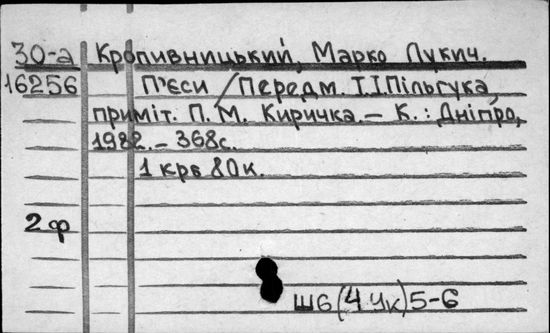 30-а Кропивницький, Марко Лукич.
16256 П'єси / Передм. І.І Пільгука,
приміт. П. М. Киричка. – К. : Дніпро,
1982. – 368с.
1 крб 80к.
2 ф
Ш6(4 Ук)5-6